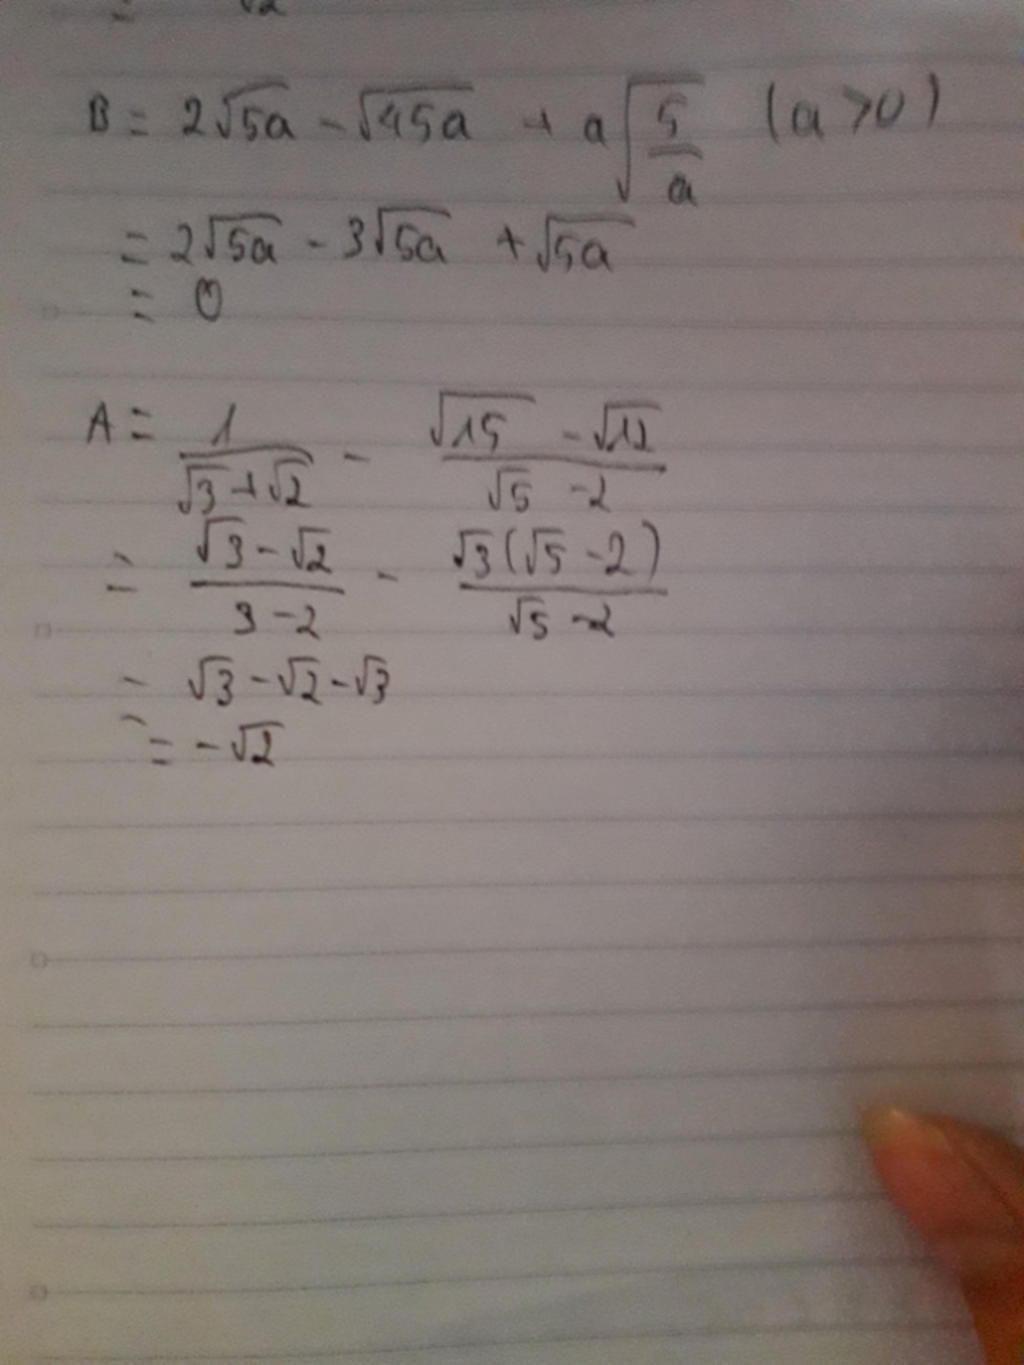 B = 2√5a - √45a + a√(5/a) (a>0)
= 2√5a - 3√5a + √5a
= 0
A = 1/(√3+√2) - (√15 - √12)/(√5 - 2)
= (√3 - √2)/(3 - 2) - √3(√5 - 2)/(√5 - 2)
= √3 - √2 - √3
= -√2